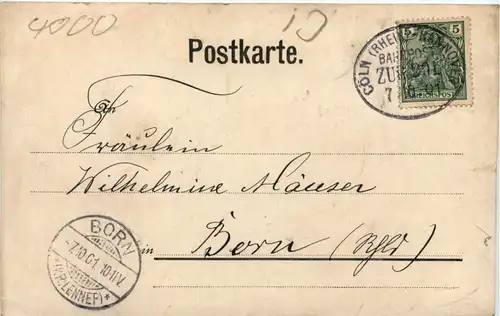 4000
Postkarte.
5
CÖLN (RHEIN)-HANNOVER
BAHNPOST
ZUG
7 10 01
An
Fräulein
Wilhelmine Mäuser
in Born (Rhld)
BORN
-7.10.01. 10-11V.
*(KR.LENNEP)*